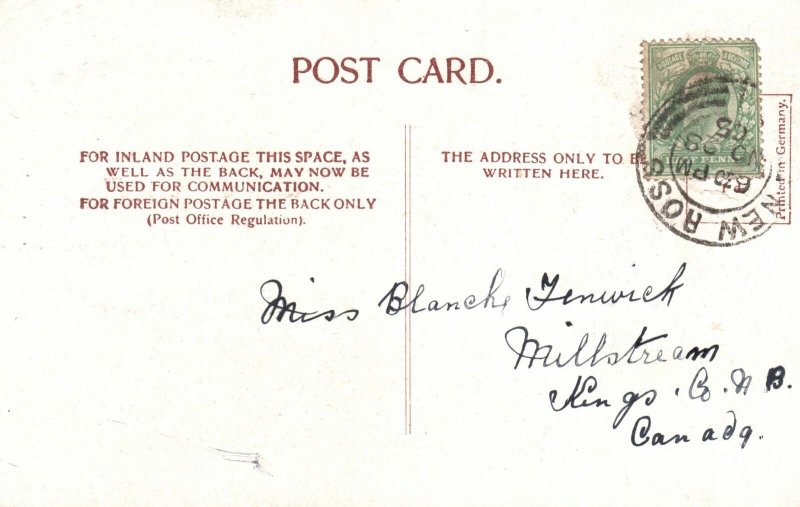 POST CARD.
FOR INLAND POSTAGE THIS SPACE, AS
WELL AS THE BACK, MAY NOW BE
USED FOR COMMUNICATION.
FOR FOREIGN POSTAGE THE BACK ONLY
(Post Office Regulation).
THE ADDRESS ONLY TO BE
WRITTEN HERE.
Printed in Germany.
POSTAGE & REVENUE
PENNY
NEW ROSS
6 30 PM
NO 29
05
Miss Blanche Fenwick
Millstream
Kings. Co. N B.
Canada.